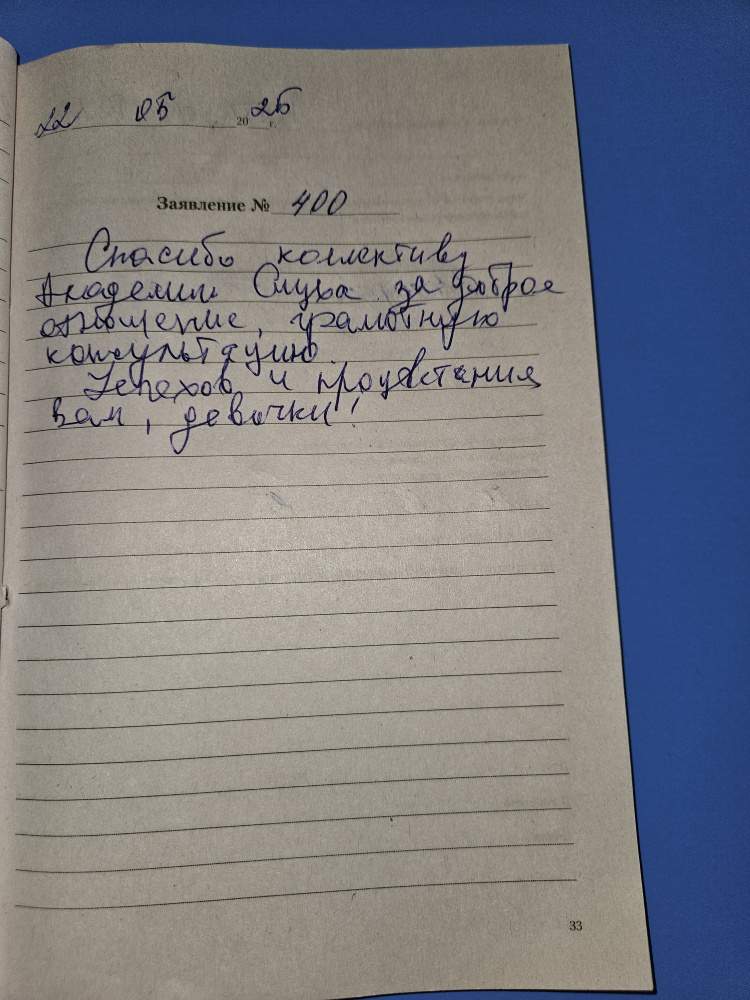 22 05 2025 г.
Заявление № 400
Спасибо коллективу
Академии Слуха за доброе
отношение, грамотную
консультацию.
Успехов и процветания
вам, девочки!
33